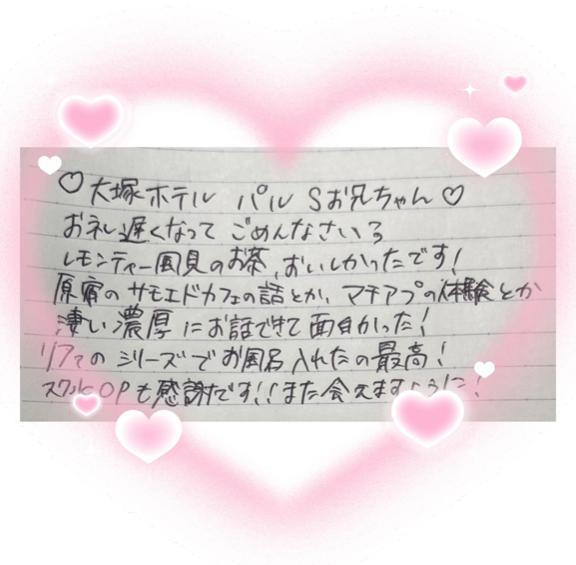 ♡大塚ホテル パル Sお兄ちゃん♡
おネし遅くなって ごめんなさい3
レモンティー風呂のお茶、おいしかったです!
原宿の サモエドカフェの話とか、マチアプの体験とか
凄い濃厚にお話できて面白かった!
シリーズでお風呂入れたの最高!
OPも感謝です!!また会えますように!